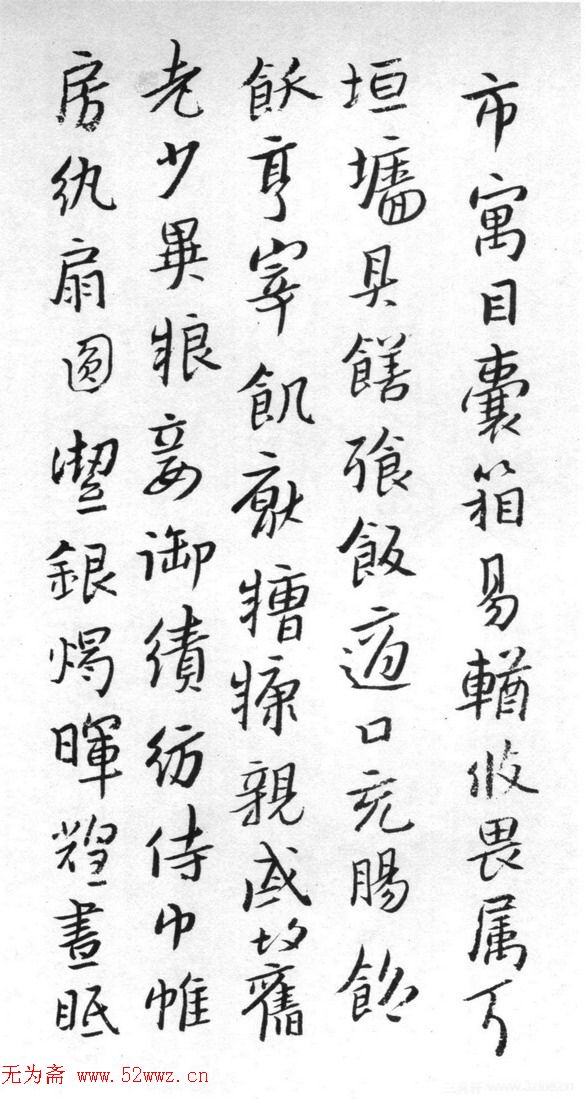 市寓目囊箱易輶攸畏属耳
垣墻具饍飱飯適口充腸飽
飫亨宰飢厭糟糠親戚故舊
老少異粮妾御績紡侍巾帷
房紈扇圓潔銀燭暉煌晝眠
无为斋 www.52wwz.cn